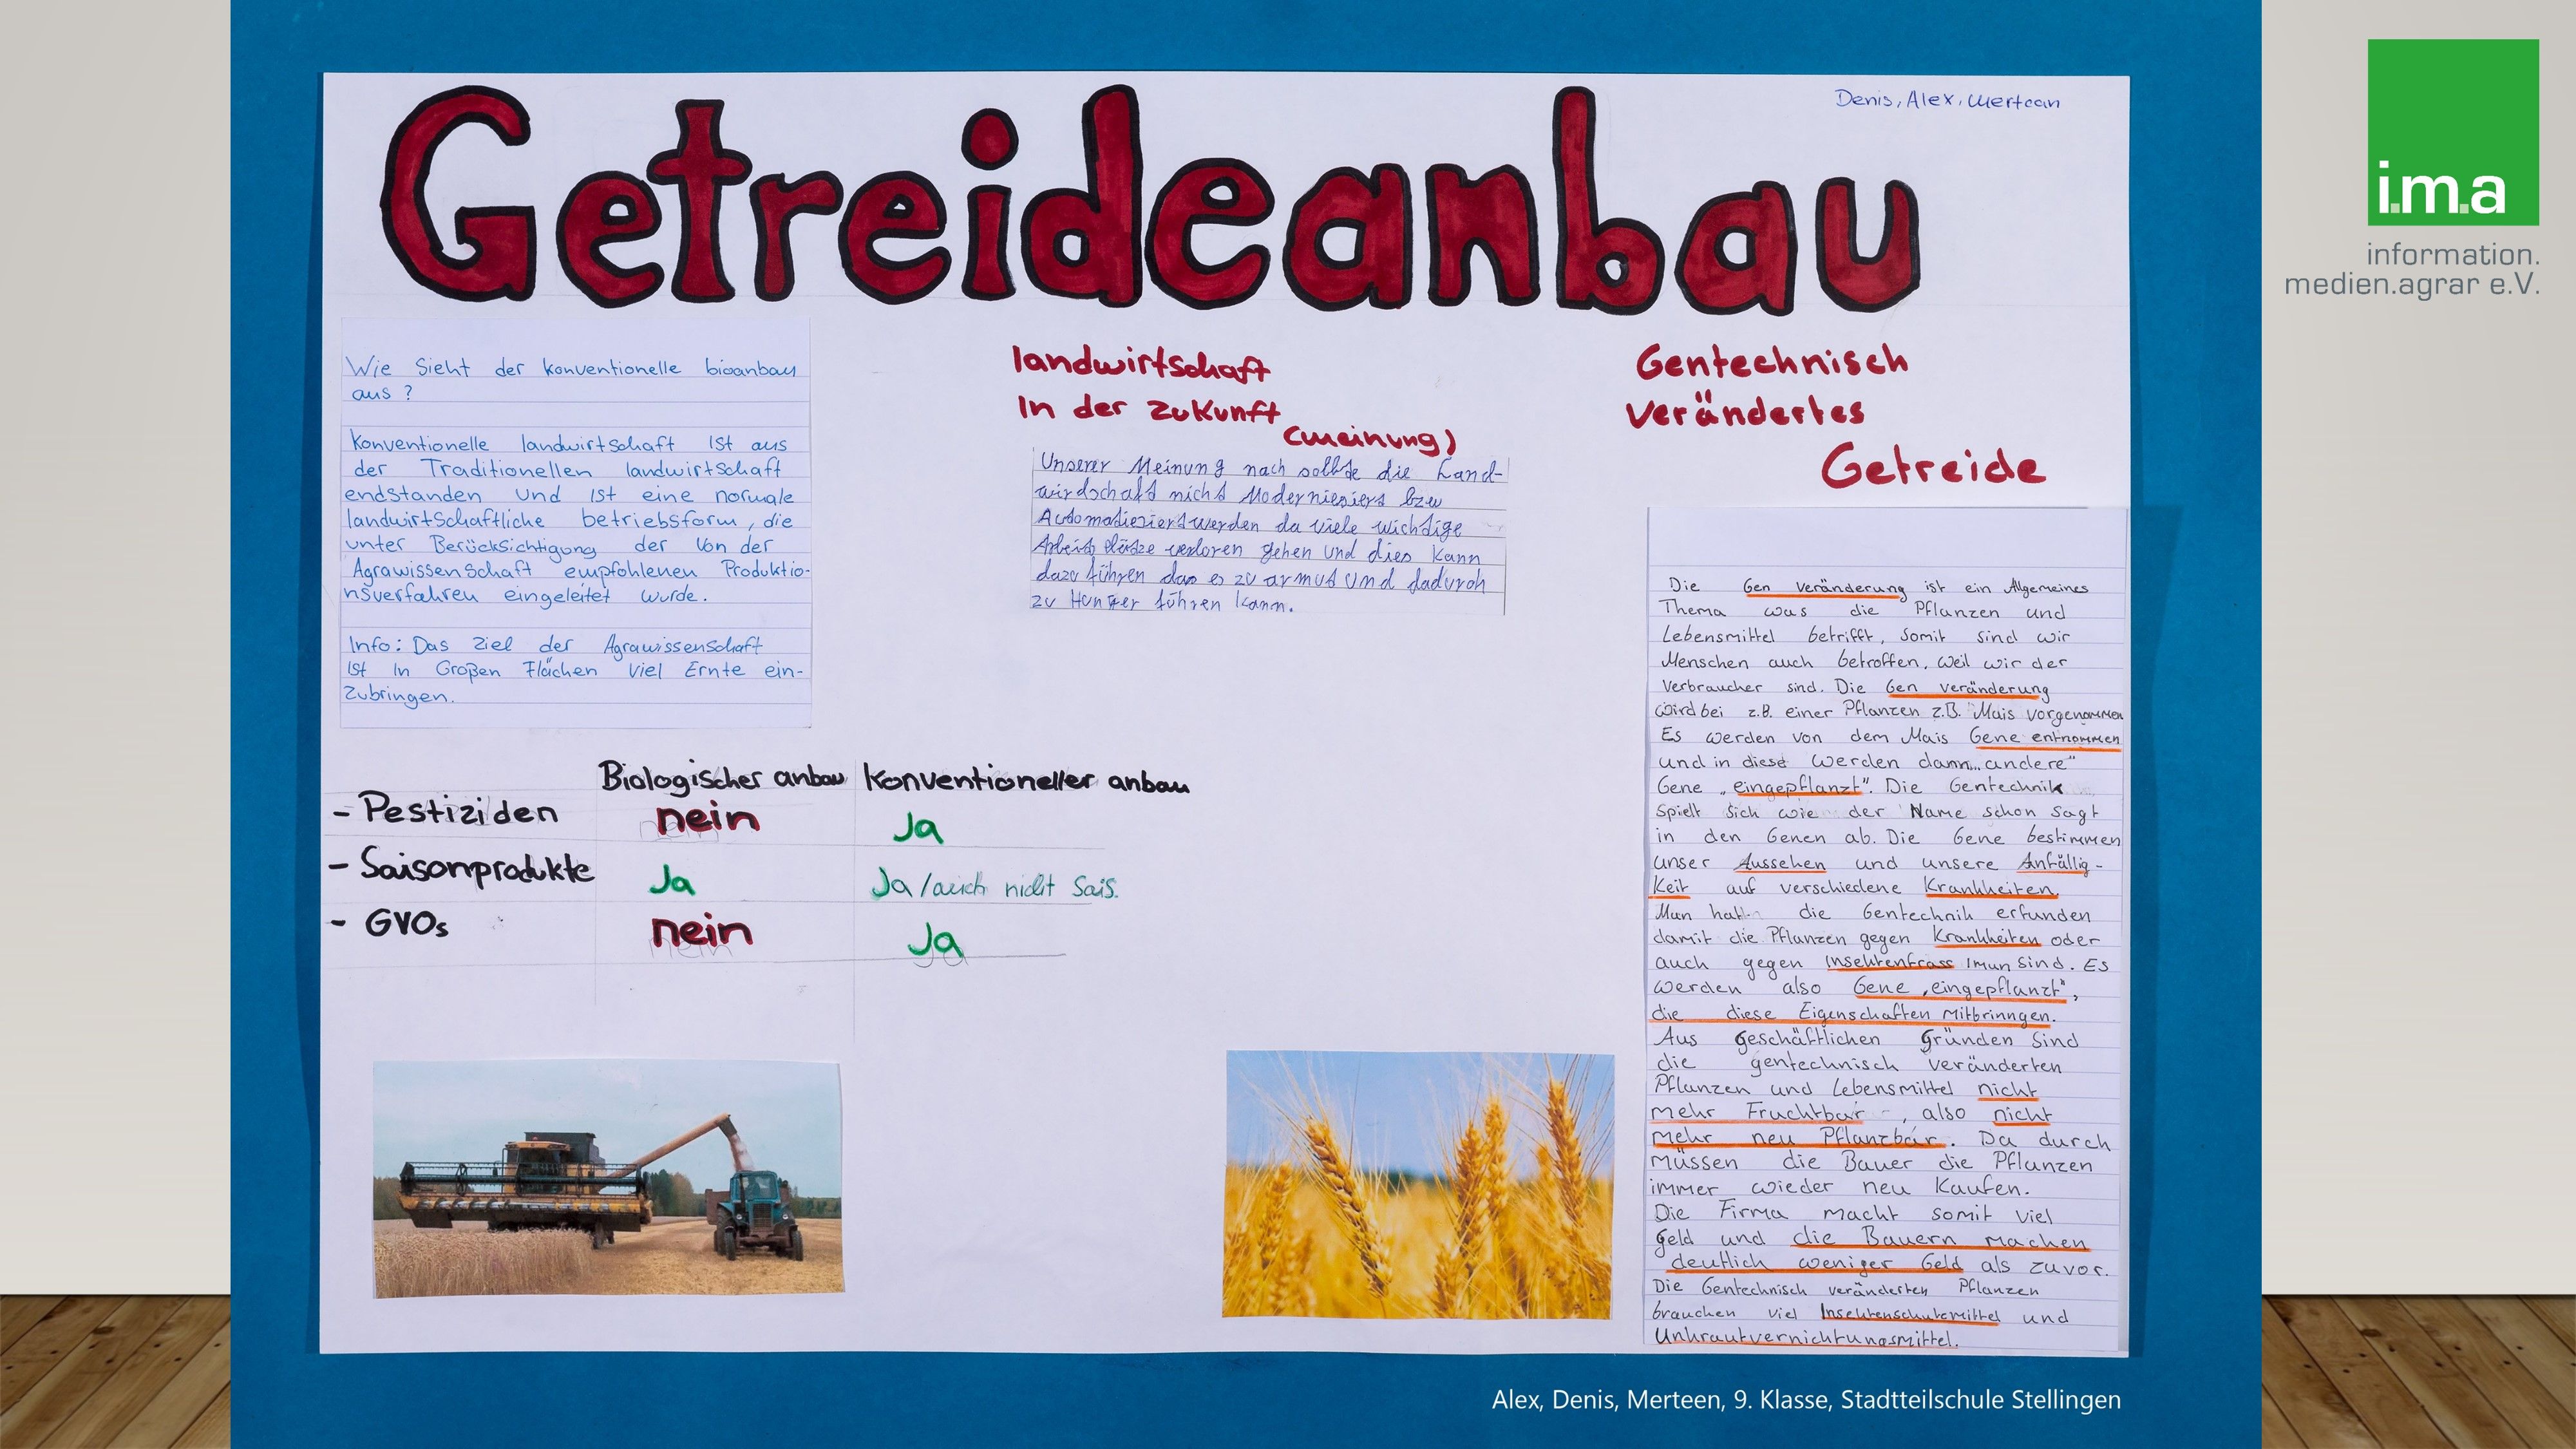 Getreideanbau
Denis, Alex, Merteen
i.m.a
information.
medien.agrar e.V.
Wie Sieht der konventionelle bioanbau
aus ?
Konventionelle landwirtschaft ist aus
der Traditionellen landwirtschaft
endstanden und ist eine normale
landwirtschaftliche betriebsform, die
unter Berücksichtigung der von der
Agrawissenschaft empfohlenen Produktio-
nsverfahren eingeleitet wurde.
Info: Das Ziel der Agrawissenschaft
ist in Großen Flächen viel Ernte ein-
zubringen.
landwirtschaft
In der Zukunft
(meinung)
Unserer Meinung nach sollte die Land-
wirdschaft nicht Moderniesiert bzw
Automatiesiert werden da viele wichtige
Arbeitsplätze verloren gehen und dies kann
dazu führen das es zu armut und dadurch
zu Hunger führen kann.
Gentechnisch
verändertes
Getreide
Die Gen veränderung ist ein Allgemeines
Thema was die Pflanzen und
Lebensmittel betrifft, somit sind wir
Menschen auch betroffen, weil wir der
Verbraucher sind. Die Gen veränderung
wird bei z.B. einer Pflanzen z.B. Mais vorgenommen
Es werden von dem Mais Gene entnommen
und in diese werden dann „andere"
Gene „eingepflanzt". Die Gentechnik
spielt sich wie der Name schon sagt
in den Genen ab. Die Gene bestimmen
unser Aussehen und unsere Anfällig-
keit auf verschiedene Krankheiten.
Man hat die Gentechnik erfunden
damit die Pflanzen gegen Krankheiten oder
auch gegen Insektenfrass imun sind. Es
werden also Gene „eingepflanzt",
die diese Eigenschaften mitbrinngen.
Aus geschäftlichen Gründen sind
die gentechnisch veränderten
Pflanzen und Lebensmittel nicht
mehr Fruchtbar, also nicht
mehr neu Pflanzbar. Da durch
müssen die Bauer die Pflanzen
immer wieder neu kaufen.
Die Firma macht somit viel
Geld und die Bauern machen
deutlich weniger Geld als zuvor.
Die Gentechnisch veränderten Pflanzen
brauchen viel Insektenschutzmittel und
Unkrautvernichtungsmittel.
Biologischer anbau Konventioneller anbau
- Pestiziden nein Ja
- Saisonprodukte Ja Ja/auch nicht Sais.
- GVOs nein Ja
Alex, Denis, Merteen, 9. Klasse, Stadtteilschule Stellingen